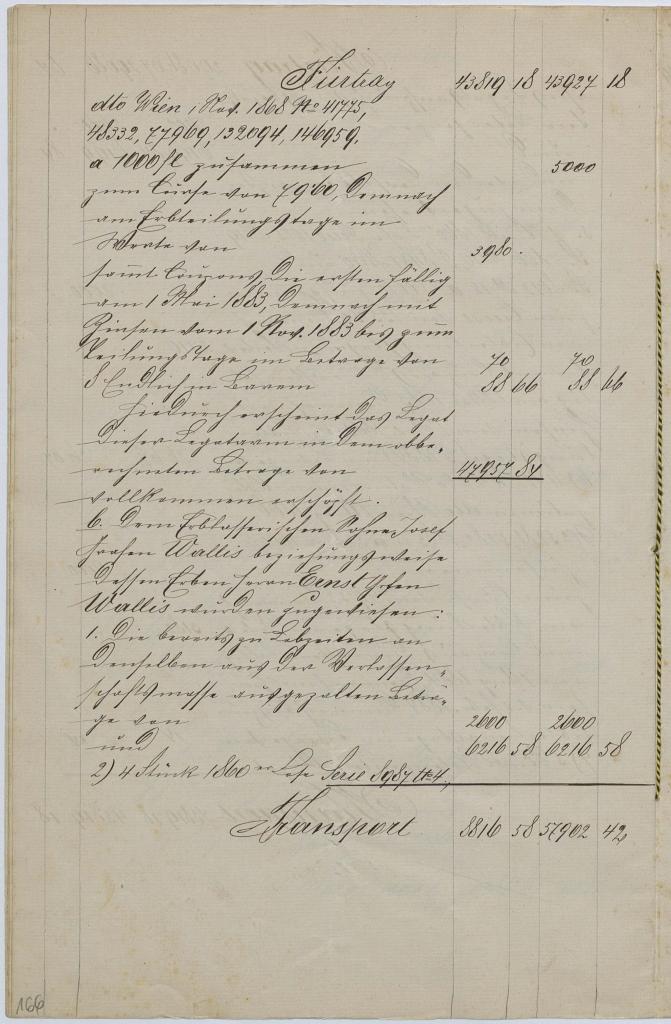 Fürtrag 43819 18 43927 18
dto Wien, 1 Nov. 1868 No 41775,
48332, 77969, 132094, 146959.
a 1000 fl zusammen 5000
zum Curse von 79·60, demnach
am Erbteilungstage im
Werte von 3980.
sammt Coupons die ersten fällig
am 1 Mai 1883, demnach mit
Zinsen vom 1 Nov. 1883 bis zum
Teilungstage im Betrage von 70 70
8 Endlich in Barem 88 66 88 66
Hiedurch erscheint das Legat
dieser Legatarin in dem obbe-
rechneten Betrage von 47957 84
vollkommen erschöpft.
6. Dem Erblasserischen Sohne Josef
Grafen Wallis beziehungsweise
dessen Erben Herrn Ernst Grafen
Wallis wurden zugewiesen:
1. Die bereits zu Lebzeiten an
denselben aus der Verlassen-
schaftsmasse ausgezalten Beträ-
ge von 2600 2600
und 6216 58 6216 58
2) 4 Stück 1860er Lose Serie 8987 No 4,
Transport 8816 58 57902 42
166